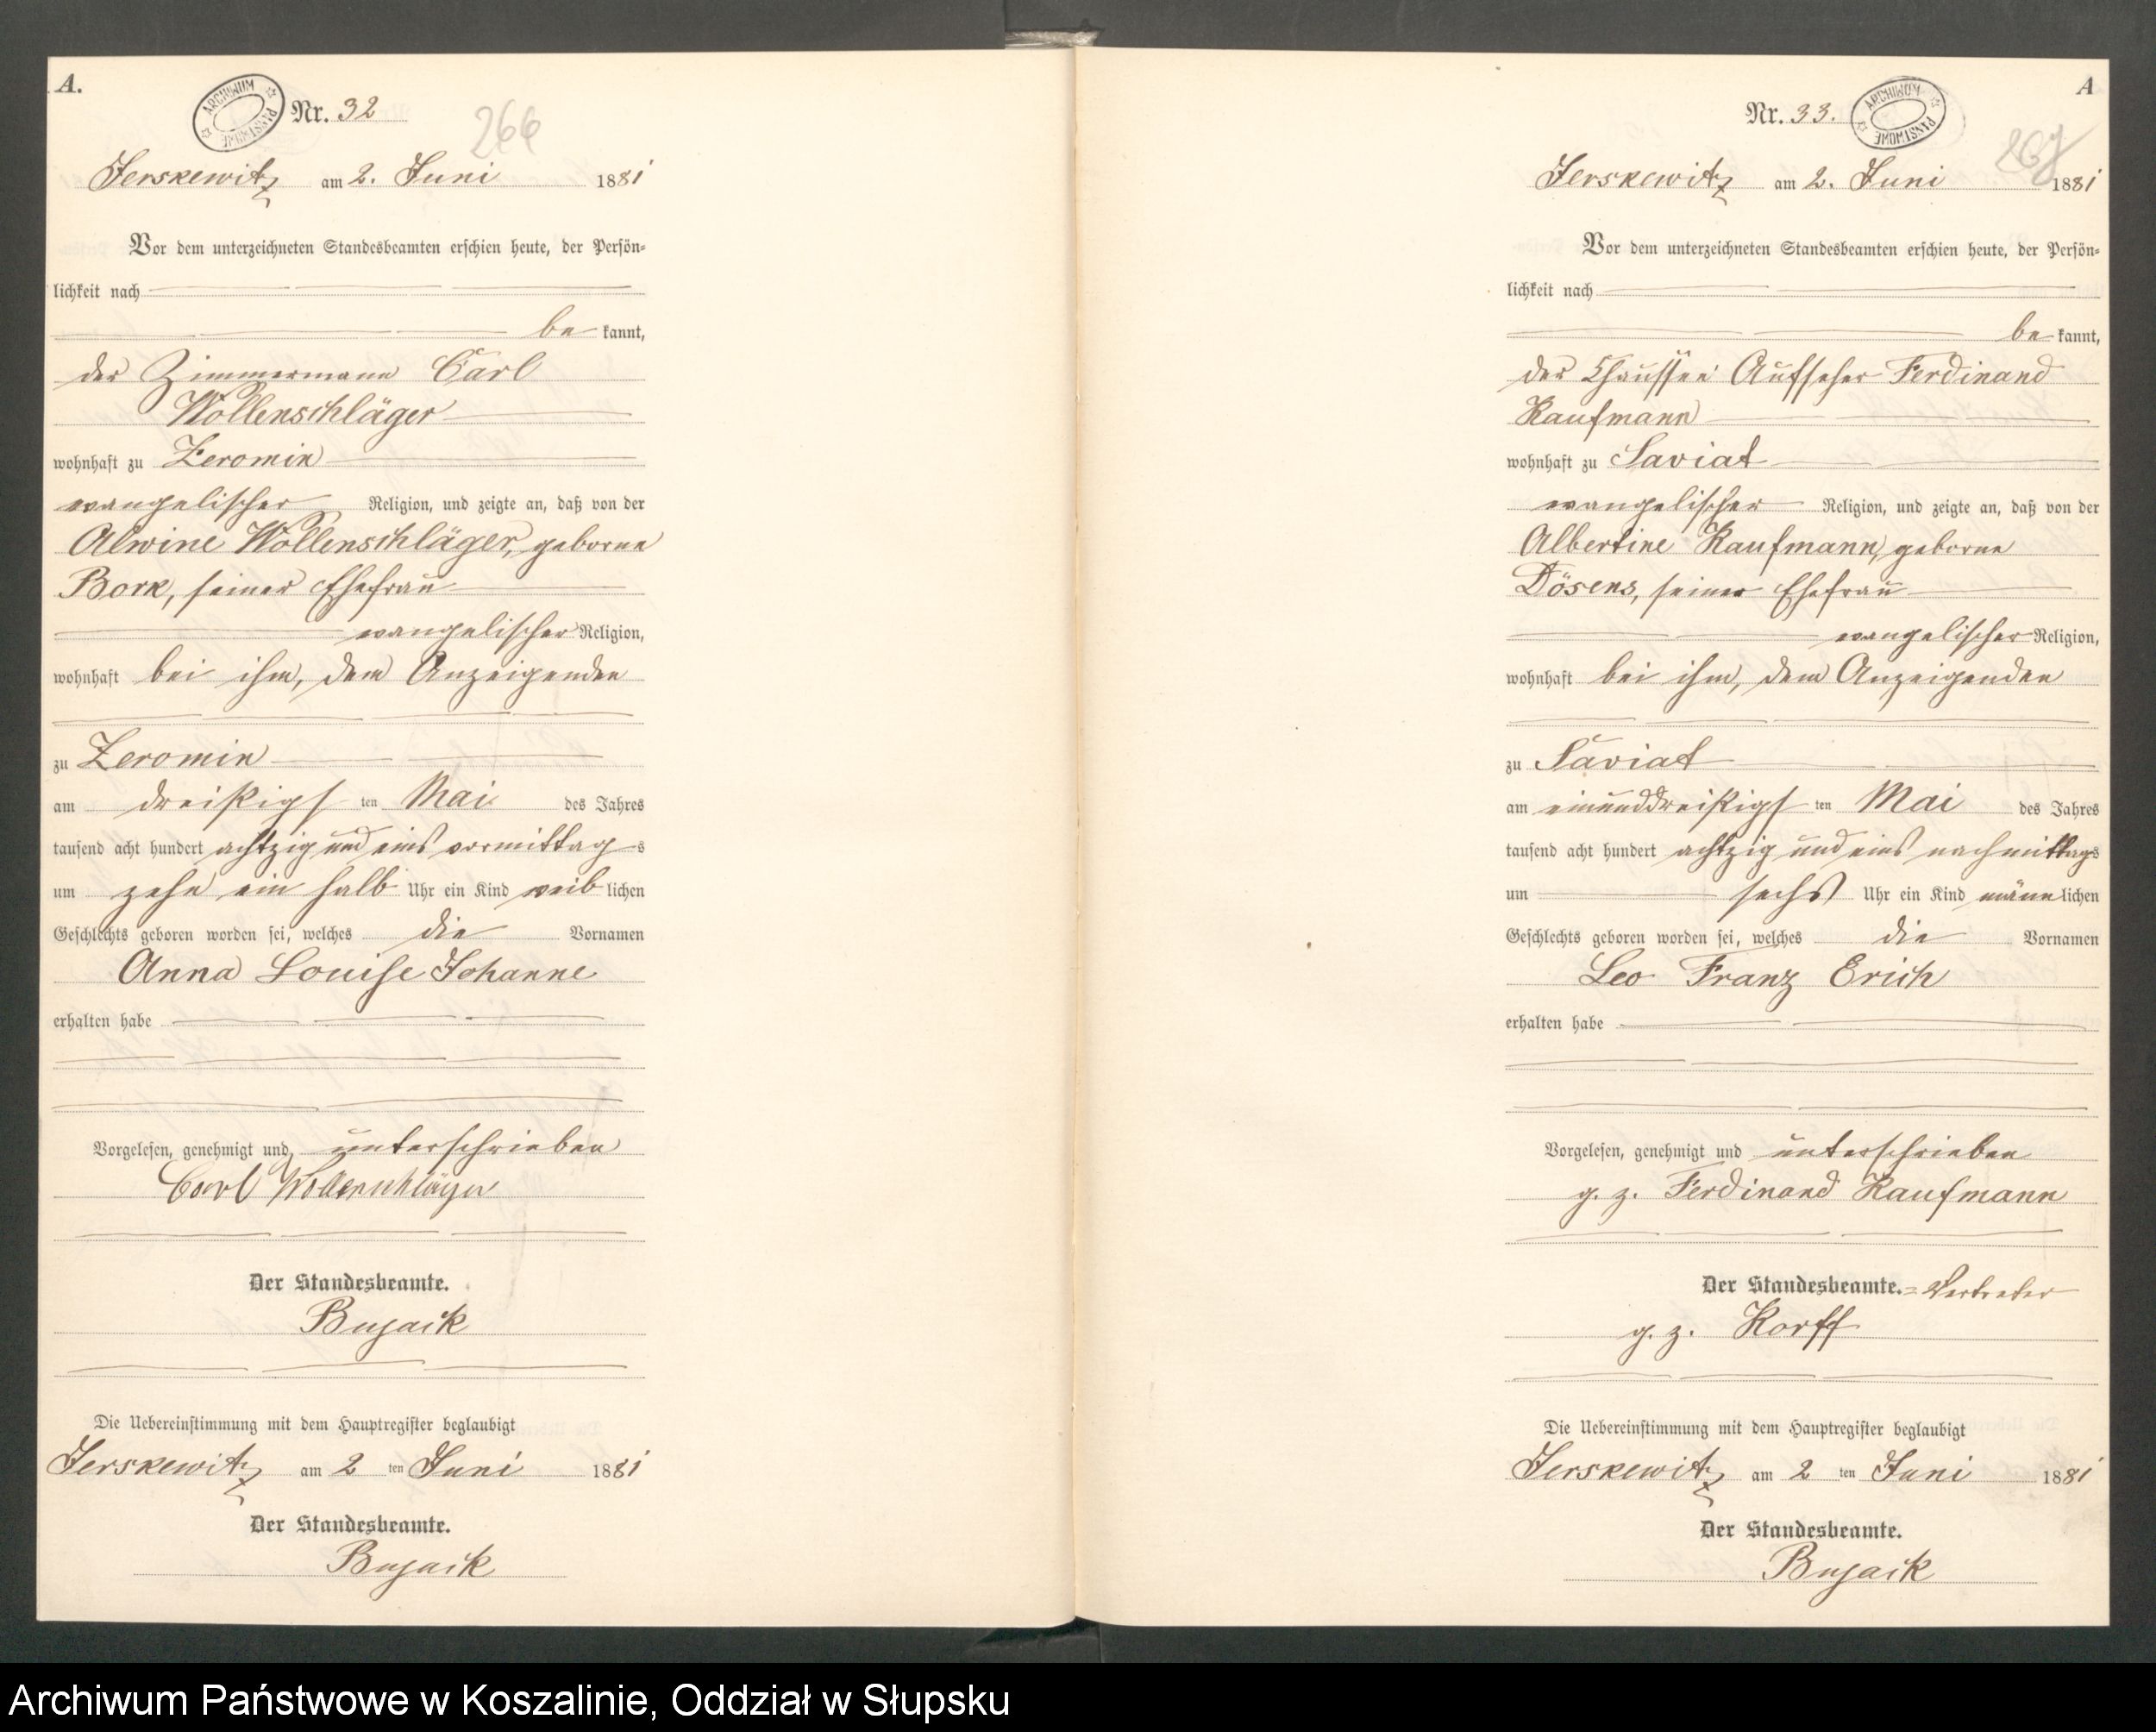 A.
ARCHIWUM PAŃSTWOWE
Nr. 32
266
Jerskewitz am 2. Juni 1881
Vor dem unterzeichneten Standesbeamten erschien heute, der Persön-
lichkeit nach
be kannt,
der Zimmermann Carl
Wollenschläger
wohnhaft zu Zeromin
evangelischer Religion, und zeigte an, daß von der
Alwine Wollenschläger, geborne
Bork, seiner Ehefrau
evangelischer Religion,
wohnhaft bei ihm, dem Anzeigenden
zu Zeromin
am dreißigst ten Mai des Jahres
tausend acht hundert achtzig und eins vormittag s
um zehn ein halb Uhr ein Kind weib lichen
Geschlechts geboren worden sei, welches die Vornamen
Anna Louise Johanne
erhalten habe
Vorgelesen, genehmigt und unterschrieben
Carl Wollenschläger
Der Standesbeamte.
Bujack
Die Uebereinstimmung mit dem Hauptregister beglaubigt
Jerskewitz am 2 ten Juni 1881
Der Standesbeamte.
Bujack
A
Nr. 33.
ARCHIWUM PAŃSTWOWE
267
Jerskewitz am 2. Juni 1881
Vor dem unterzeichneten Standesbeamten erschien heute, der Persön-
lichkeit nach
be kannt,
der Chaussee Aufseher Ferdinand
Kaufmann
wohnhaft zu Saviat
evangelischer Religion, und zeigte an, daß von der
Albertine Kaufmann, geborne
Dösens, seiner Ehefrau
evangelischer Religion,
wohnhaft bei ihm, dem Anzeigenden
zu Saviat
am einunddreißigst ten Mai des Jahres
tausend acht hundert achtzig und eins nachmittags
um sechs Uhr ein Kind männ lichen
Geschlechts geboren worden sei, welches die Vornamen
Leo Franz Erich
erhalten habe
Vorgelesen, genehmigt und unterschrieben
g. z. Ferdinand Kaufmann
Der Standesbeamte. = Vertreter
g. z. Korff
Die Uebereinstimmung mit dem Hauptregister beglaubigt
Jerskewitz am 2 ten Juni 1881
Der Standesbeamte.
Bujack
Archiwum Państwowe w Koszalinie, Oddział w Słupsku